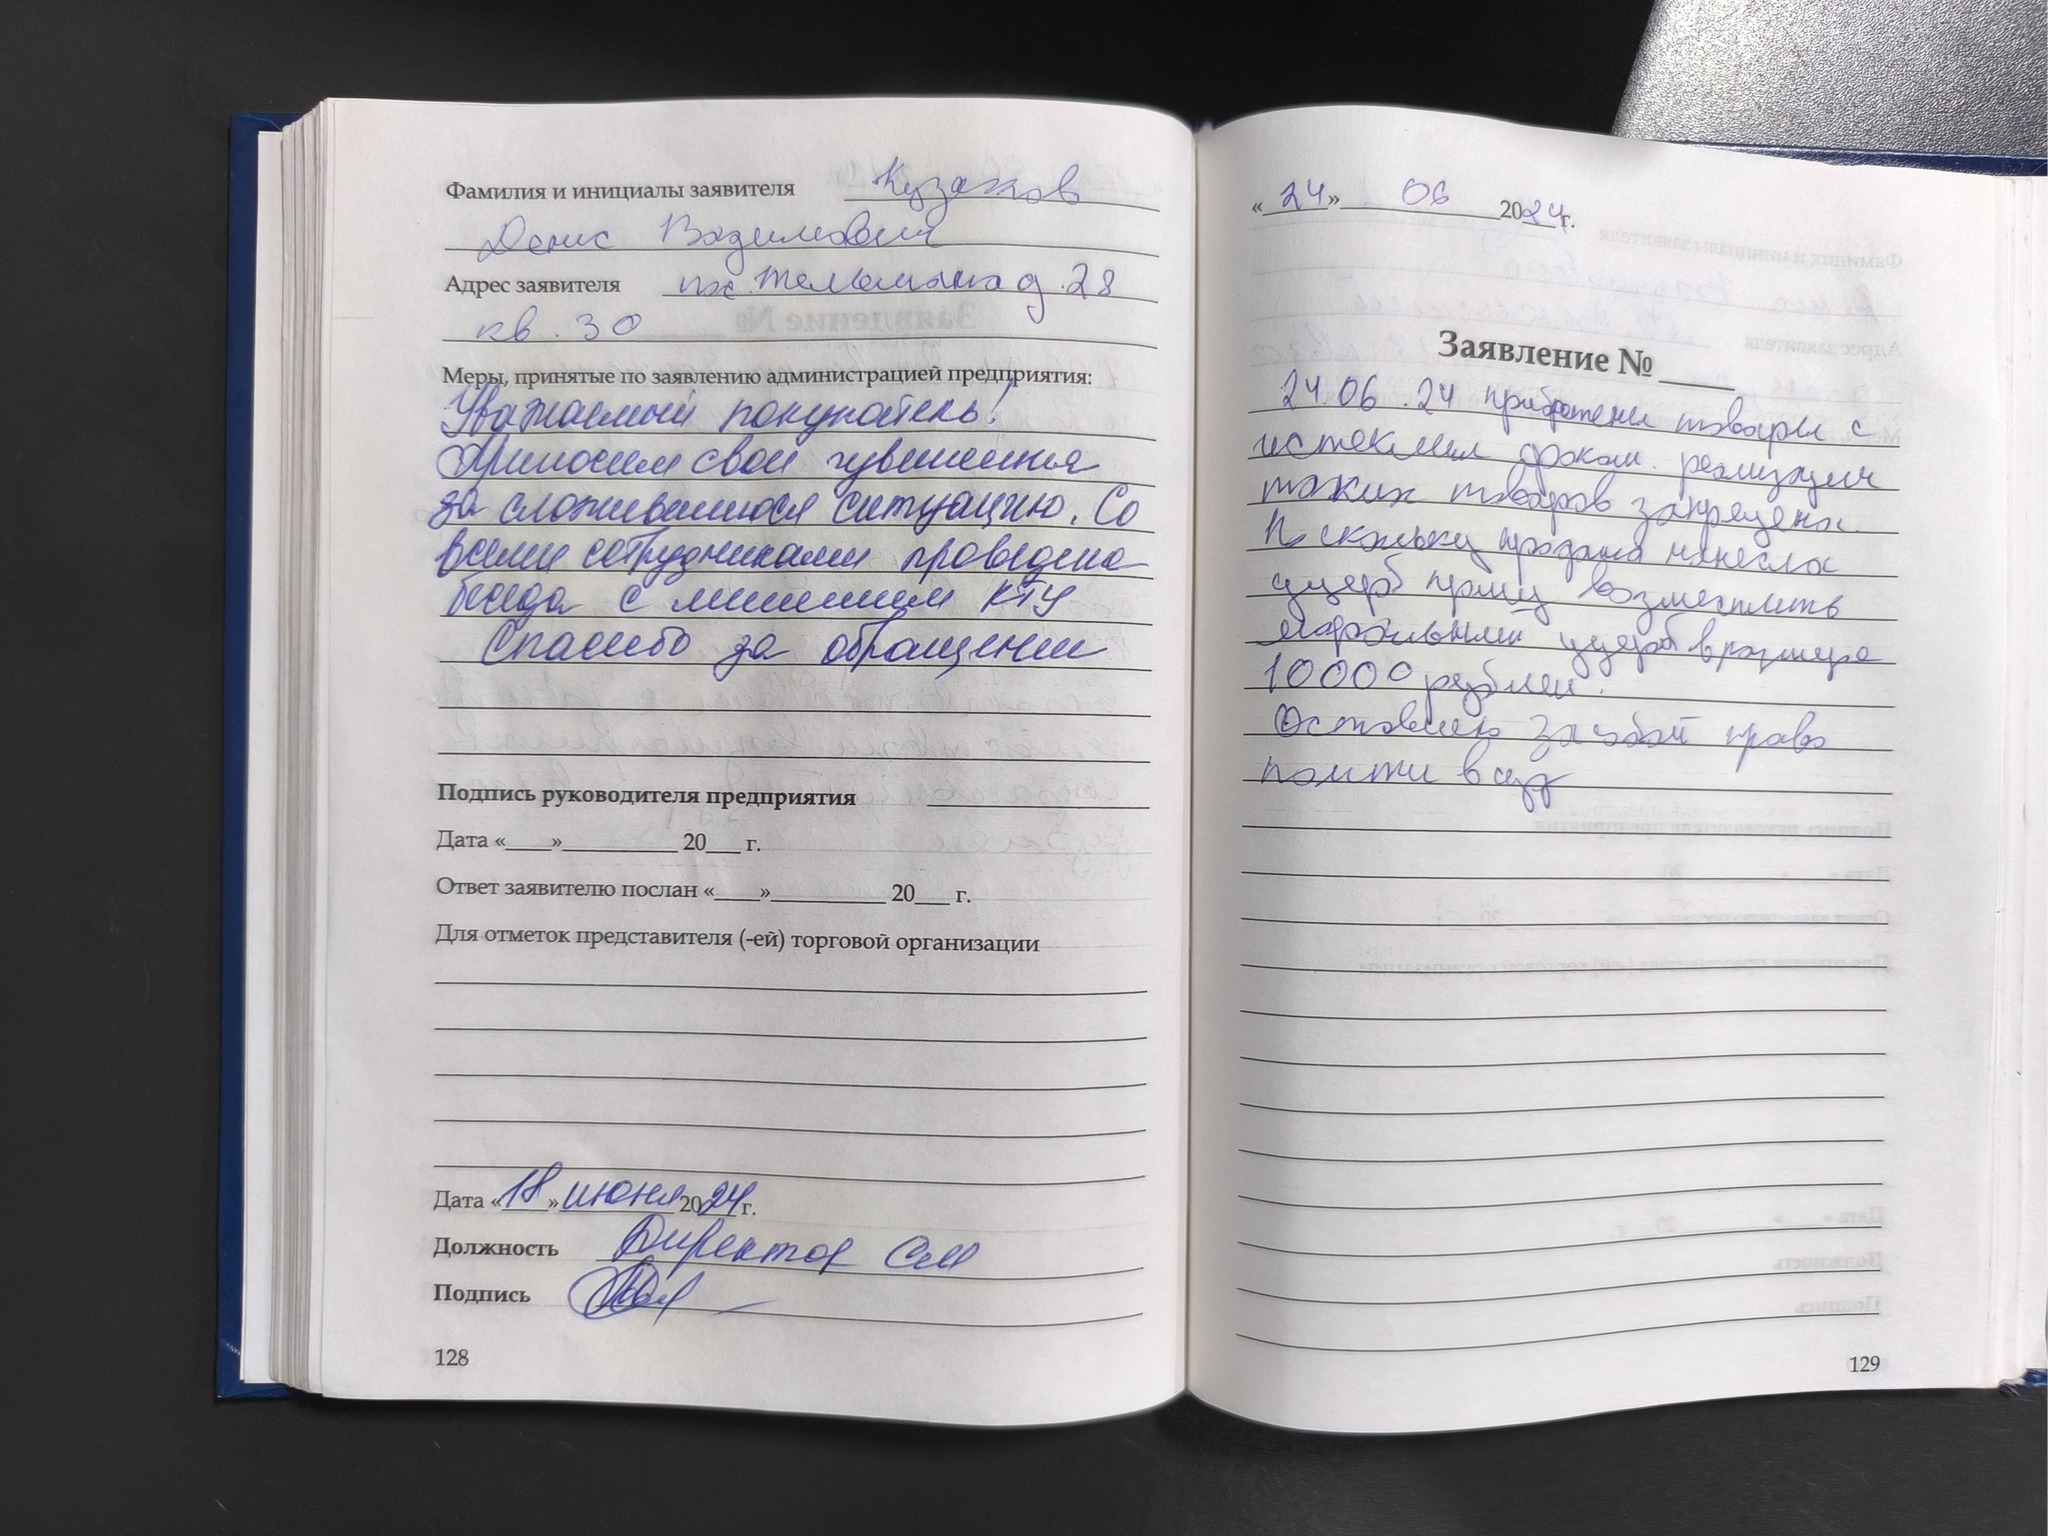 Фамилия и инициалы заявителя Кузаков
Денис Вадимович
Адрес заявителя пос. Тельмана д. 28
кв. 30
Меры, принятые по заявлению администрацией предприятия:
Уважаемый покупатель!
Приносим свои
за сложившуюся ситуацию. Со
всеми сотрудниками проведена
беседа с лишением КТУ
Спасибо за обращение
Подпись руководителя предприятия
Дата «___»_________ 20___ г.
Ответ заявителю послан «___»_________ 20___ г.
Для отметок представителя (-ей) торговой организации
Дата «18» июня 2024 г.
Должность Директор СМ
Подпись
128
«24» 06 2024 г.
Заявление № ___
24.06.24 приобретены товары с
истекшим сроком. реализация
таких товаров запрещена.
Поскольку продажа нанесла
ущерб прошу возместить
моральный ущерб в размере
10000 рублей.
Оставляю за собой право
пойти в суд
129